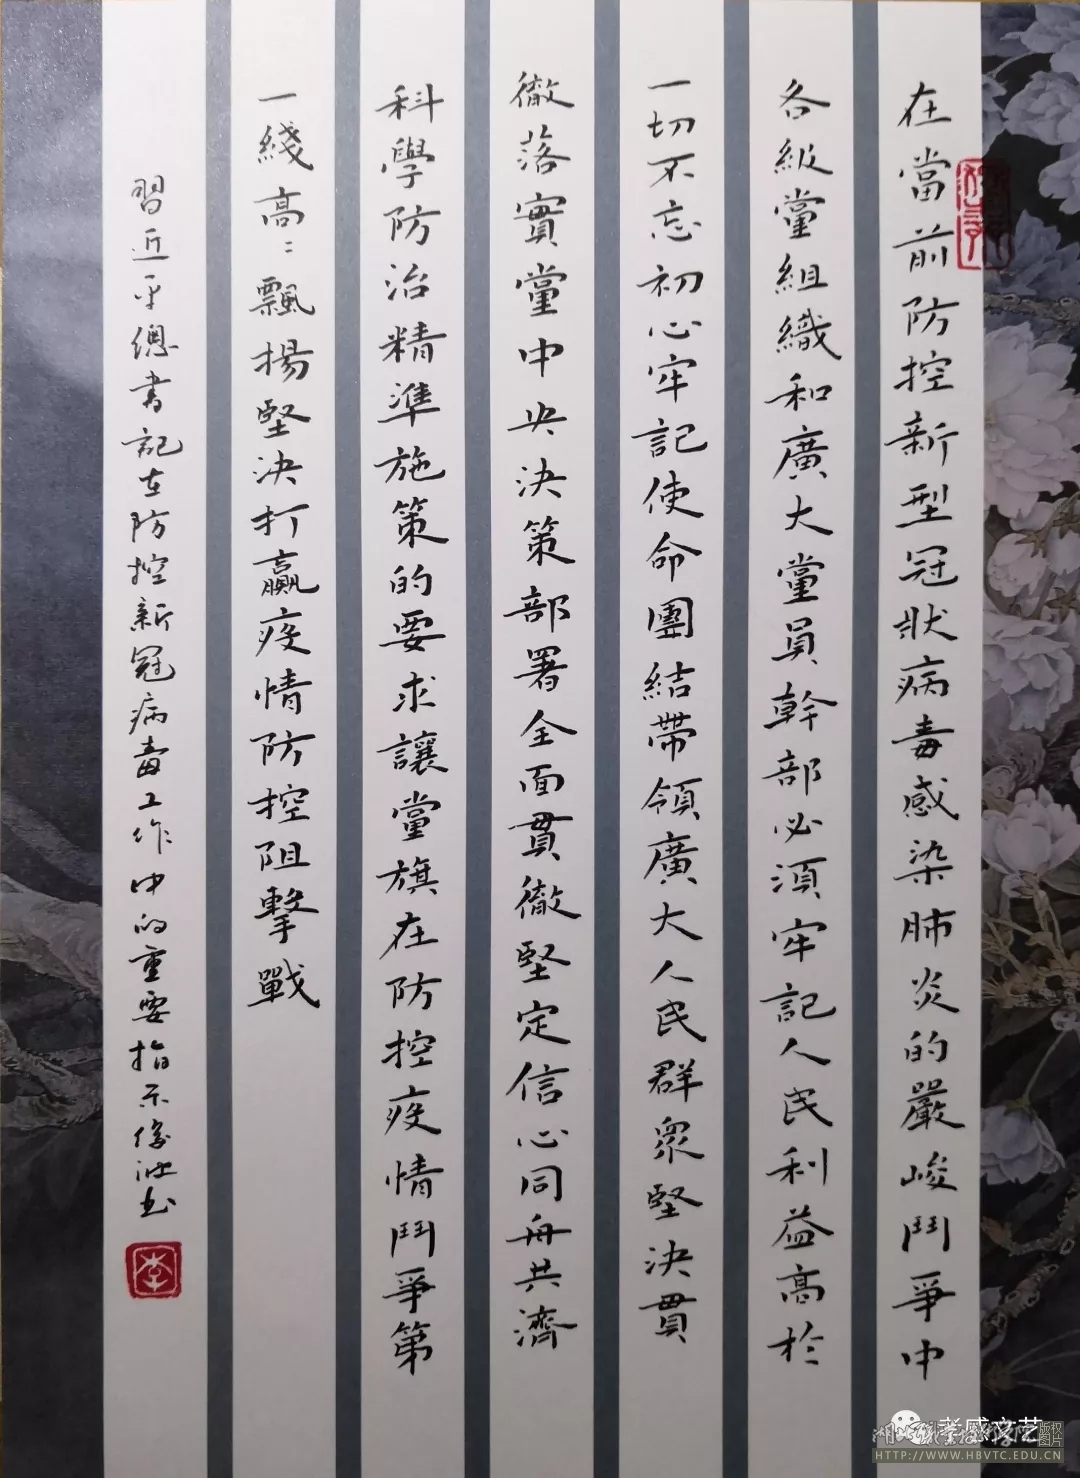 在當前防控新型冠狀病毒感染肺炎的嚴峻鬥爭中
各級黨組織和廣大黨員幹部必須牢記人民利益高於
一切不忘初心牢記使命團結帶領廣大人民群衆堅決貫
徹落實黨中央決策部署全面貫徹堅定信心同舟共濟
科學防治精準施策的要求讓黨旗在防控疫情鬥爭第
一綫高〻飄揚堅決打贏疫情防控阻擊戰
習近平總書記在防控新冠病毒工作中的重要指示俊波书
李
孝感文艺
版权图片
HTTP://WWW.HBVTC.EDU.CN